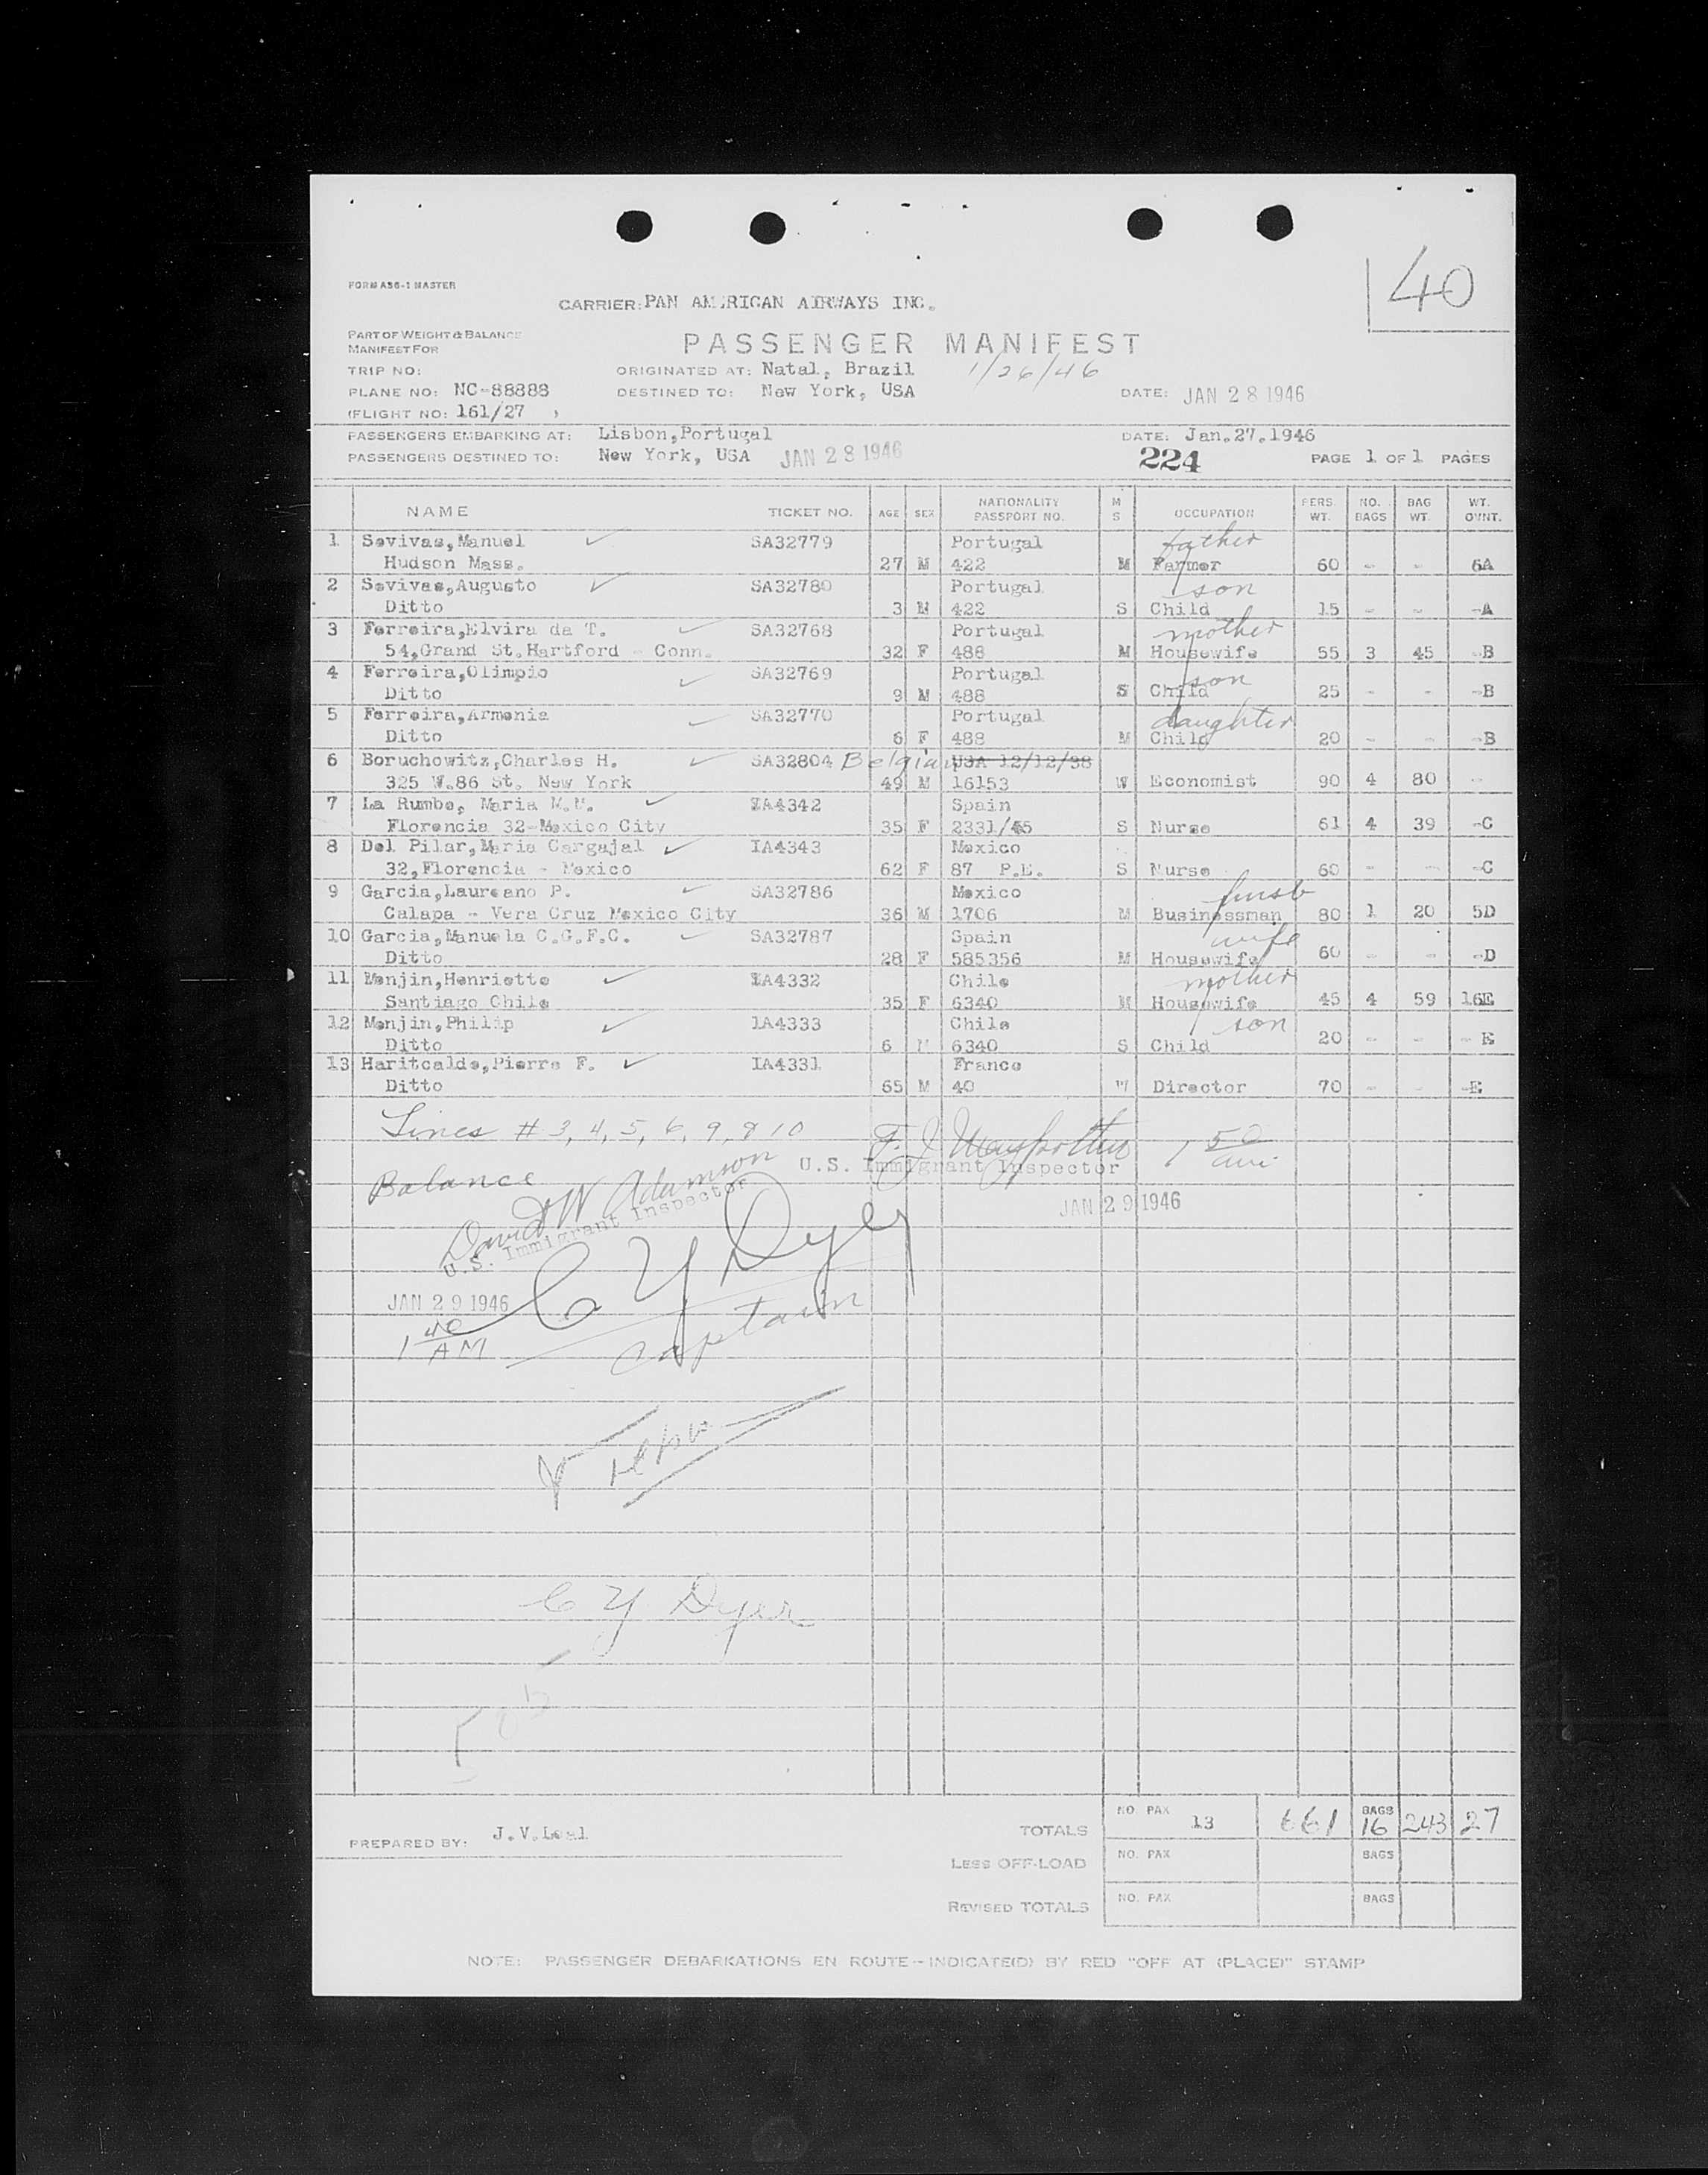 40
FORM A86-1 MASTER
CARRIER: PAN AM.RICAN AIRWAYS INC.
PART OF WEIGHT & BALANCE
MANIFEST FOR
PASSENGER MANIFEST
TRIP NO: ORIGINATED AT: Natal, Brazil 1/26/46
PLANE NO: NC-88888 DESTINED TO: New York, USA DATE: JAN 28 1946
(FLIGHT NO: 161/27 )
PASSENGERS EMBARKING AT: Lisbon,Portugal DATE: Jan.27.1946
PASSENGERS DESTINED TO: New York, USA JAN 28 1946 224 PAGE 1 OF 1 PAGES
NAME TICKET NO. AGE SEX NATIONALITY PASSPORT NO. M S OCCUPATION PERS. WT. NO. BAGS BAG WT. WT. OVNT.
1 Sevivas,Manuel SA32779 Portugal father
Hudson Mass. 27 M 422 M Farmer 60 - - 6A
2 Sevivas,Augusto SA32780 Portugal son
Ditto 3 M 422 S Child 15 - - -A
3 Ferreira,Elvira da T. SA32768 Portugal mother
54,Grand St.Hartford - Conn. 32 F 488 M Housewife 55 3 45 -B
4 Ferreira,Olimpio SA32769 Portugal son
Ditto 9 M 488 S Child 25 - - -B
5 Ferreira,Armenia SA32770 Portugal daughter
Ditto 6 F 488 M Child 20 - - -B
6 Boruchowitz,Charles H. SA32804 Belgian USA 12/12/38
325 W.86 St, New York 49 M 16153 W Economist 90 4 80 --
7 La Rumbe, Maria M.M. IA4342 Spain
Florencia 32-Mexico City 35 F 2331/45 S Nurse 61 4 39 -C
8 Del Pilar,Maria Cargajal IA4343 Mexico
32,Florencia - Mexico 62 F 87 P.E. S Nurse 60 - - -C
9 Garcia,Laureano P. SA32786 Mexico husb
Calapa - Vera Cruz Mexico City 36 M 1706 M Businessman 80 1 20 5D
10 Garcia,Manuela C.G.F.C. SA32787 Spain wife
Ditto 28 F 585356 M Housewife 60 - - -D
11 Menjin,Henriette IA4332 Chile mother
Santiago Chile 35 F 6340 M Housewife 45 4 59 16E
12 Menjin,Philip IA4333 Chile son
Ditto 6 M 6340 S Child 20 - - -E
13 Haritcalde,Pierre F. IA4331 France
Ditto 65 M 40 W Director 70 - - -E
Lines # 3, 4, 5, 6, 9, & 10 F. J. 1 50 am
U.S. Immigrant Inspector
Balance JAN 29 1946
David W Adamson
U.S. Immigrant Inspector
C Y Dyer
JAN 29 1946
1 40 AM
Captain
C Y Dyer
PREPARED BY: J.V.Leal
TOTALS NO. PAX 13 661 BAGS 16 243 27
LESS OFF-LOAD NO. PAX BAGS
REVISED TOTALS NO. PAX BAGS
NOTE: PASSENGER DEBARKATIONS EN ROUTE--INDICATE(D) BY RED "OFF AT (PLACE)" STAMP